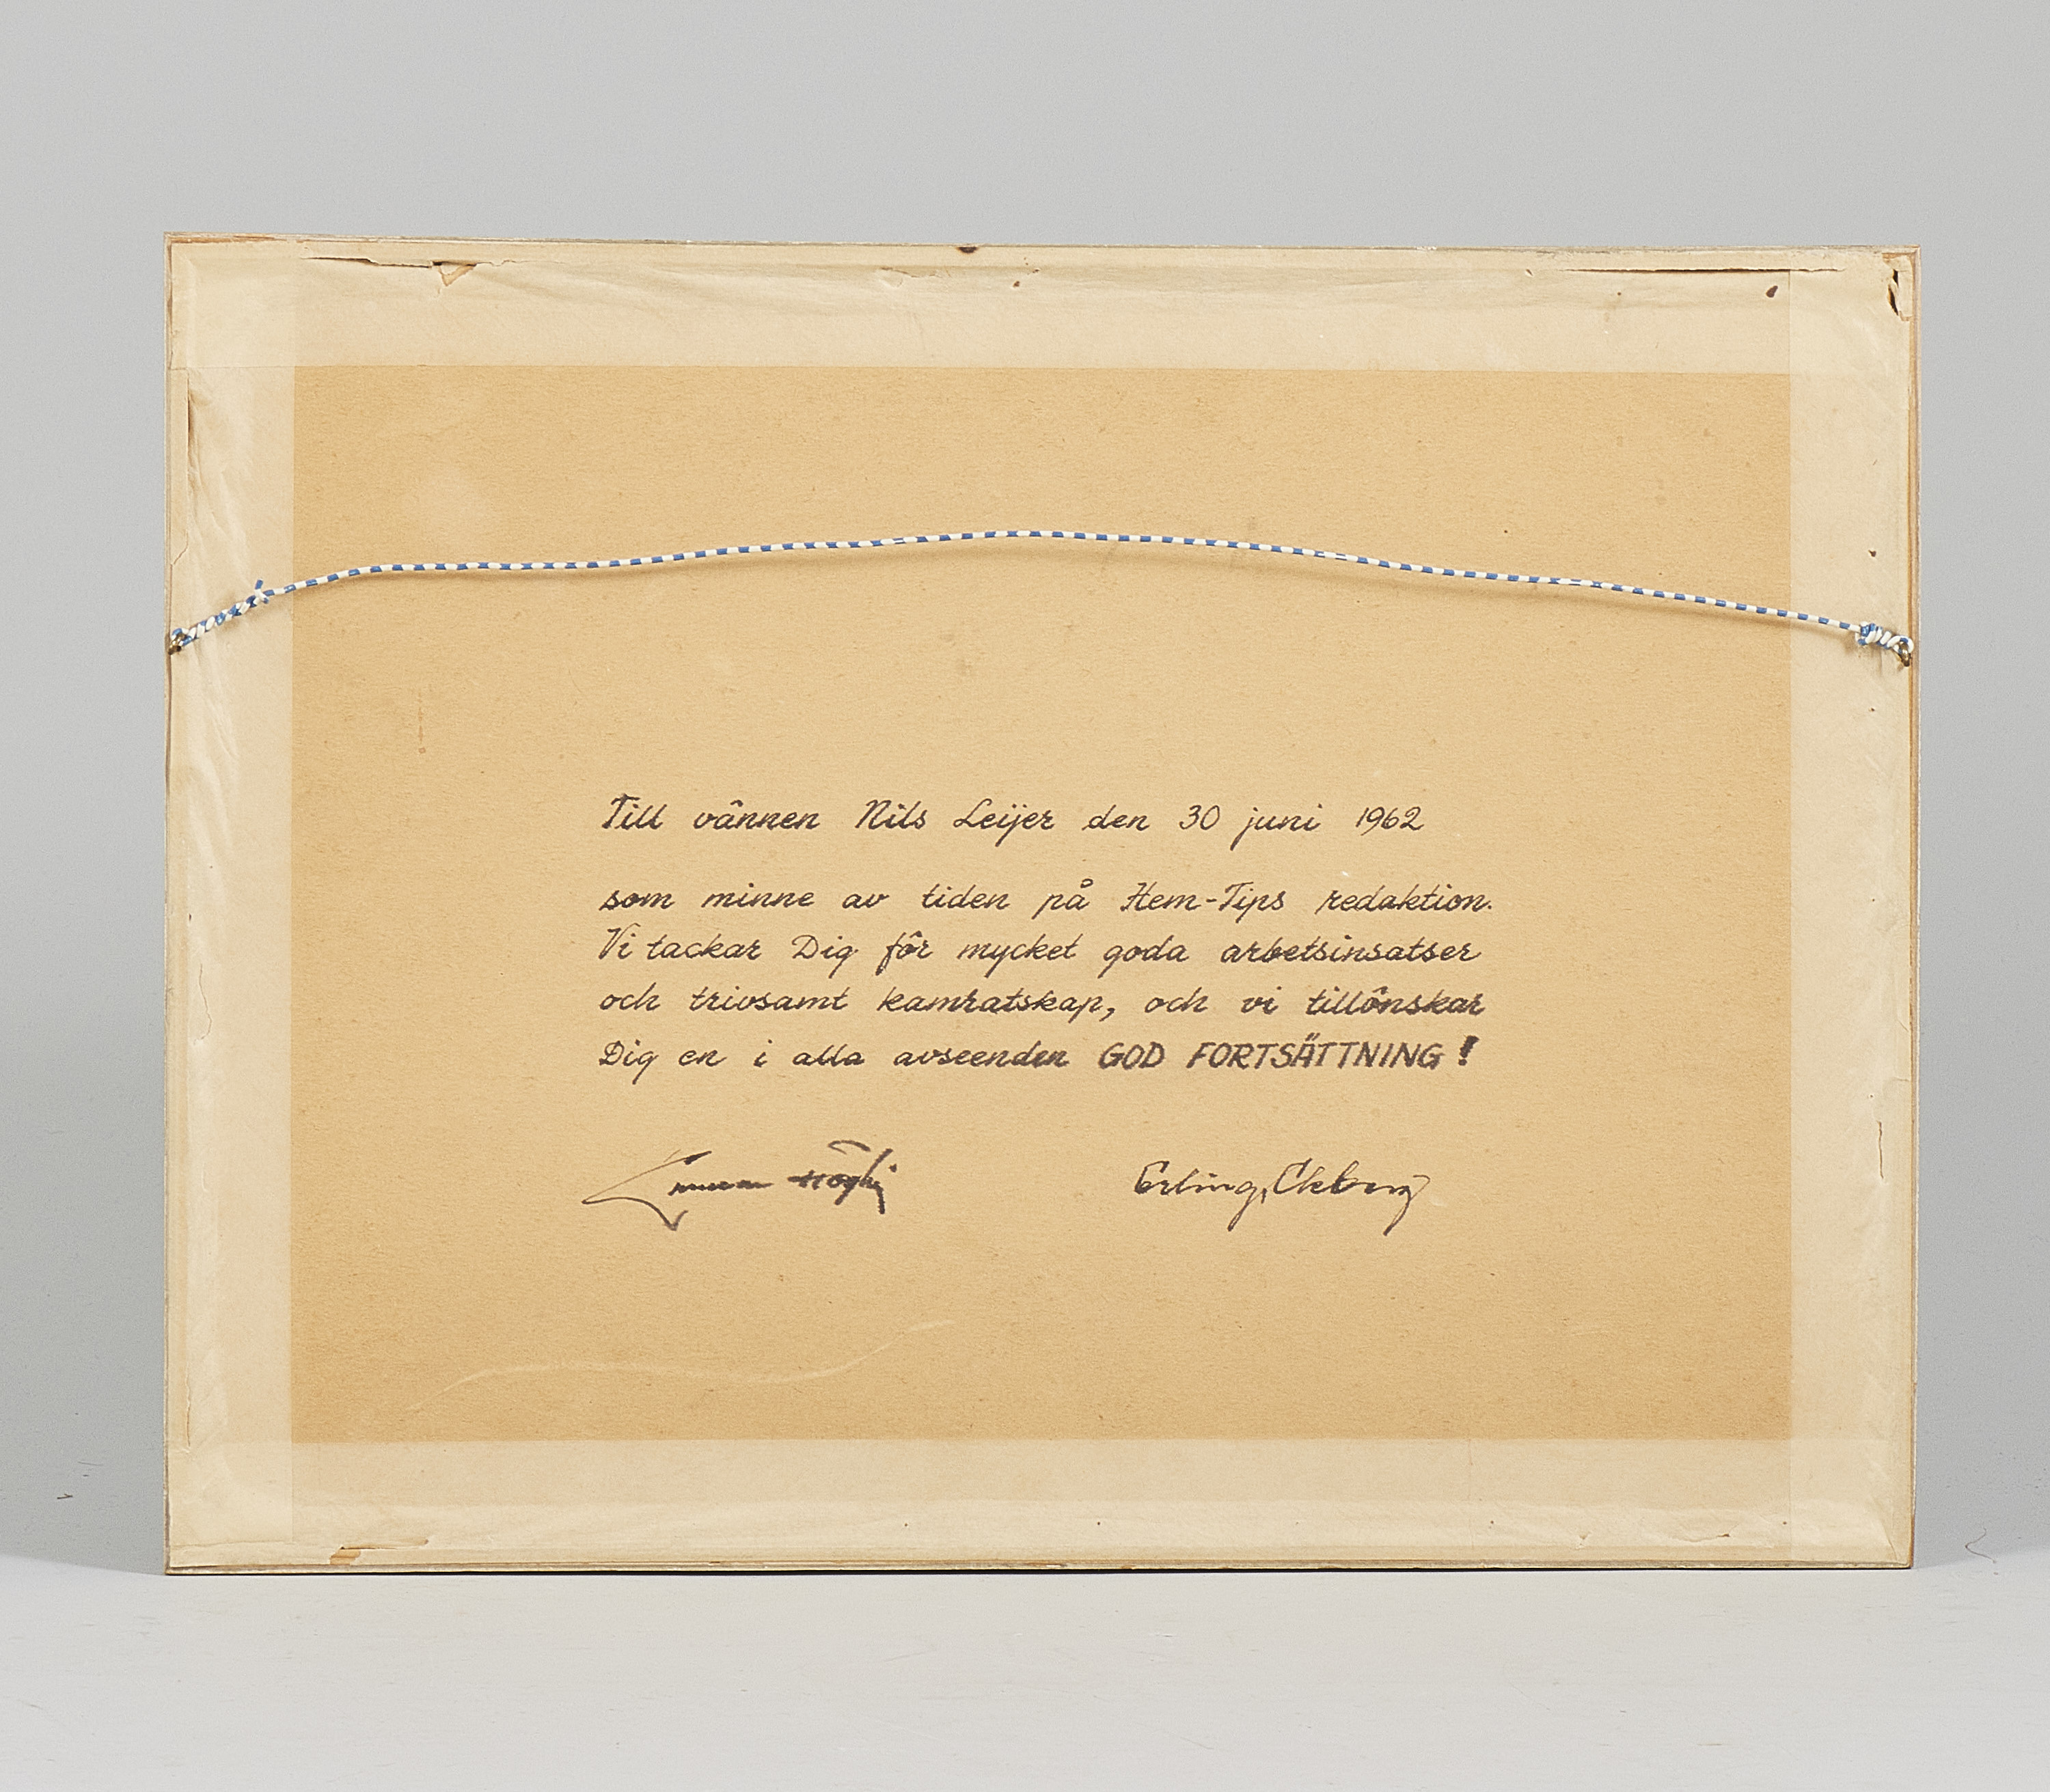 Till vännen Nils Leijer den 30 juni 1962
som minne av tiden på Hem-Tips redaktion.
Vi tackar Dig för mycket goda arbetsinsatser
och trivsamt kamratskap, och vi tillönskar
Dig en i alla avseenden GOD FORTSÄTTNING!
Erling Ekberg